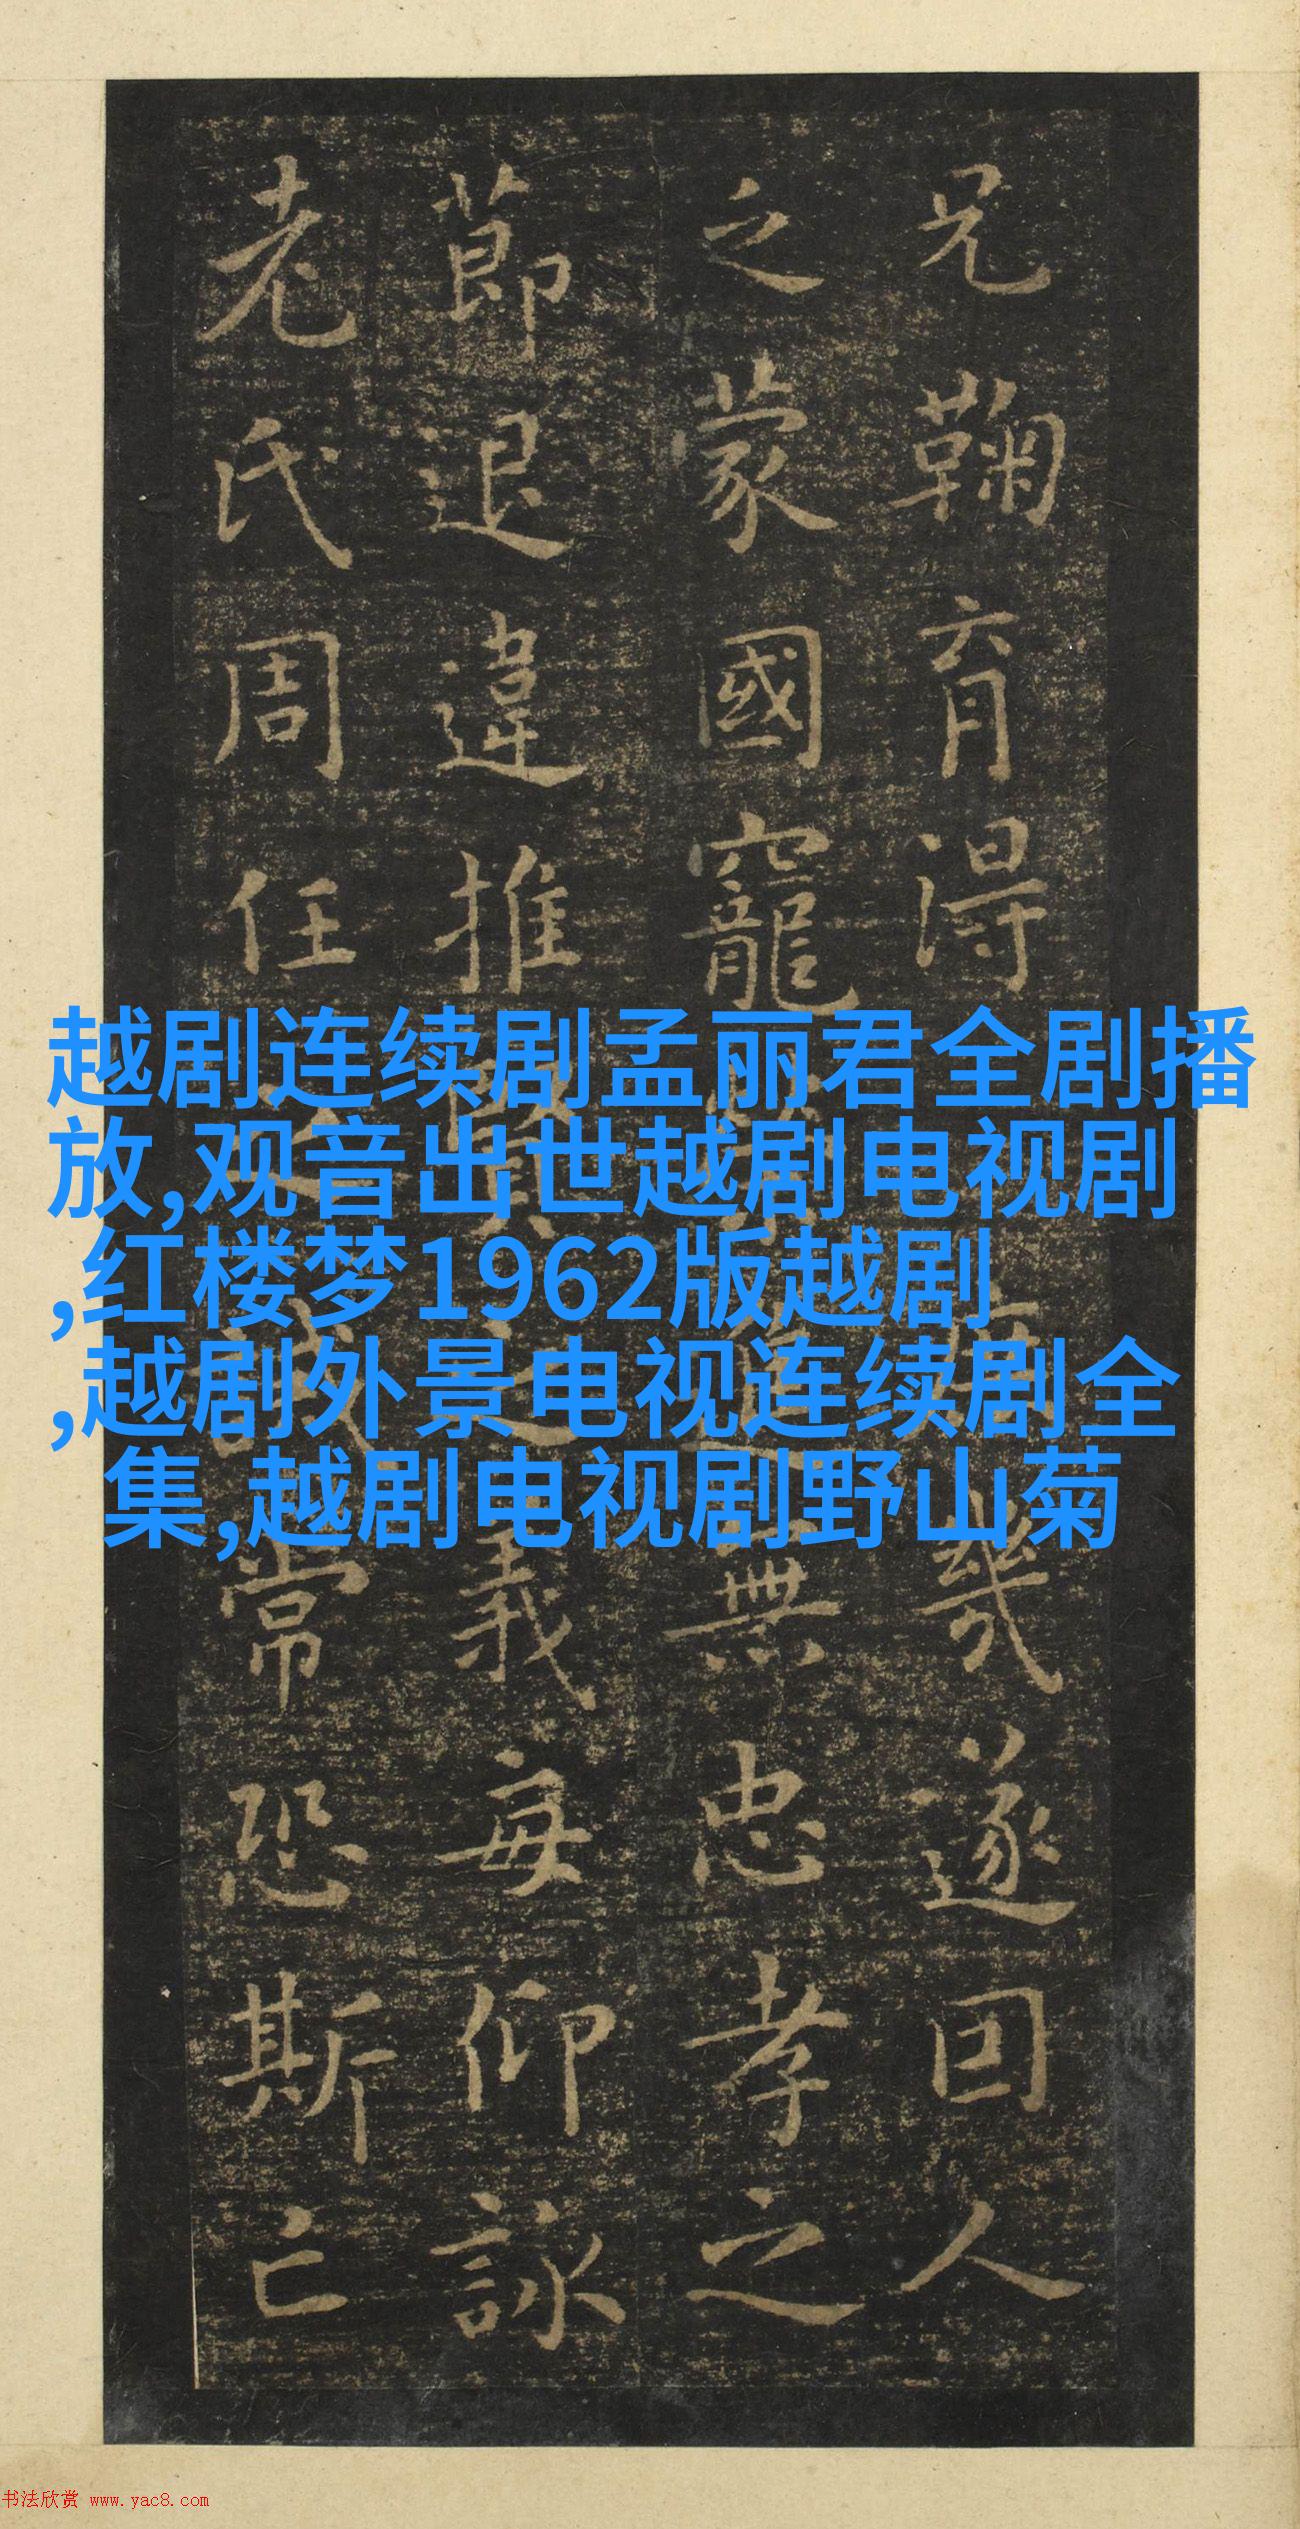 兄鞠育得幾遂因人
之蒙國寵進無忠孝之
莭退違推賢之義每仰詠
老氏周任之誡常恐斯亡
越剧连续剧孟丽君全剧播
放,观音出世越剧电视剧
,红楼梦1962版越剧
,越剧外景电视连续剧全
集,越剧电视剧野山菊
书法欣赏 www.yac8.com